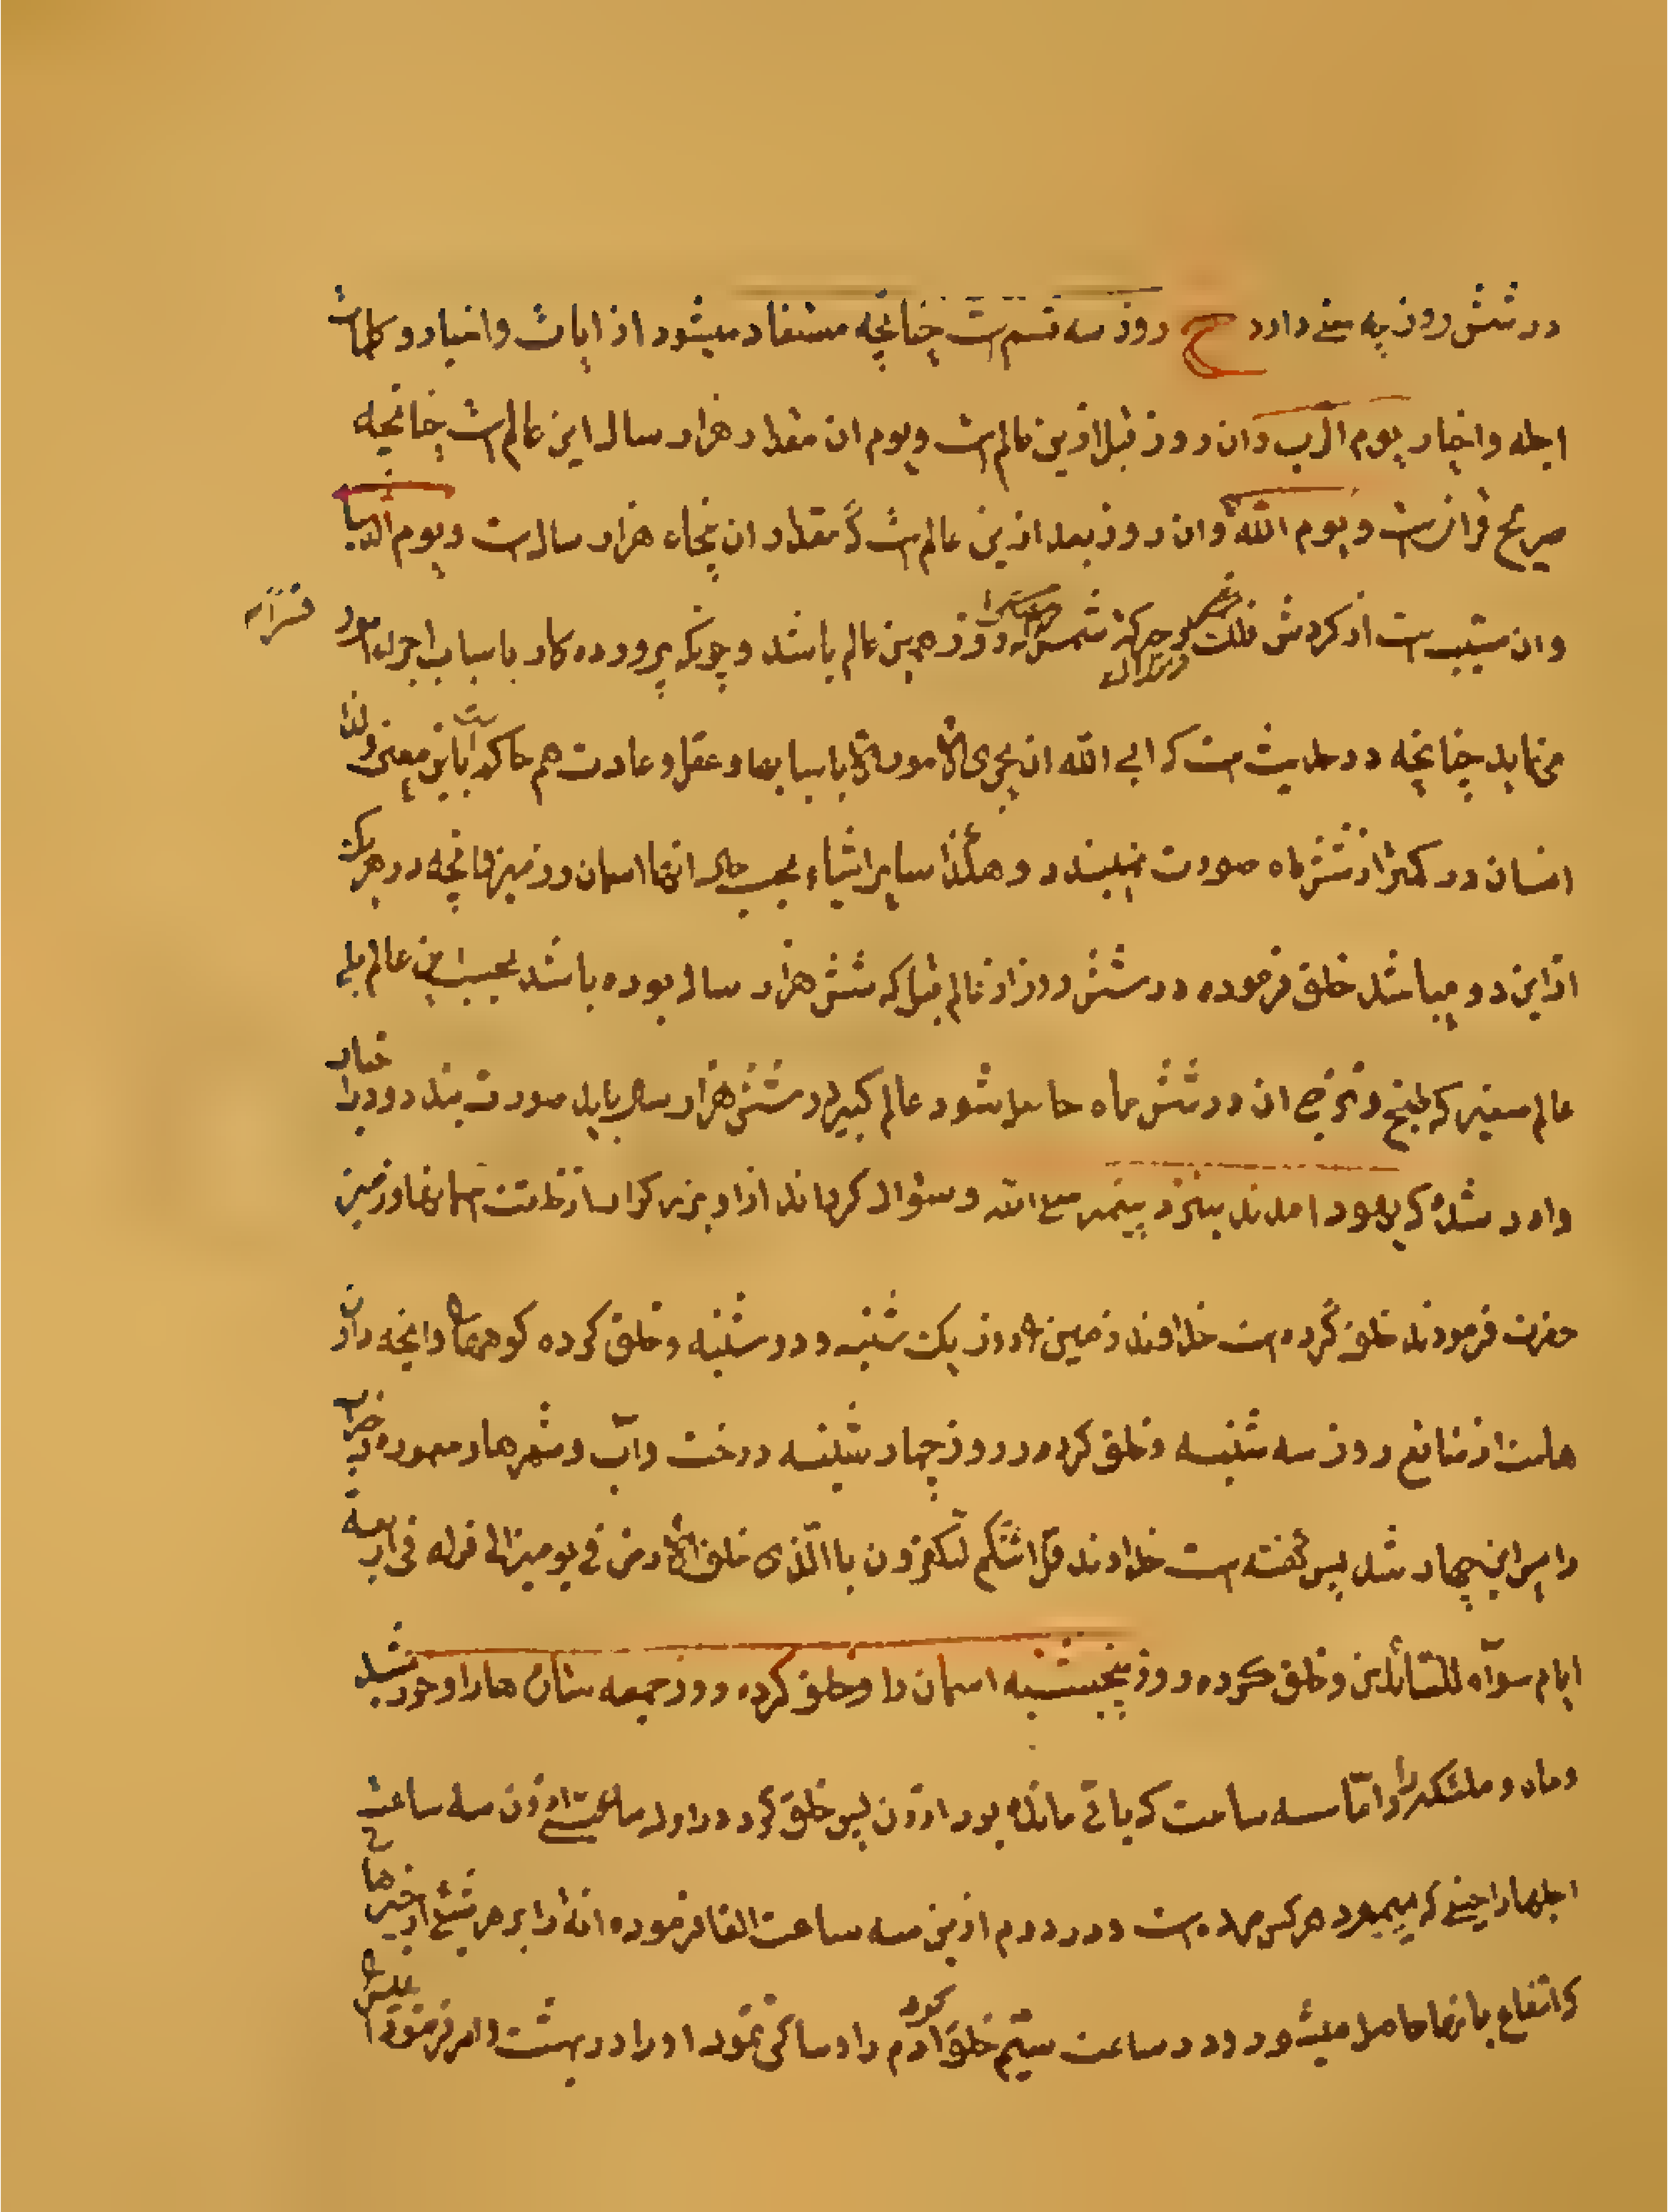 در شش روز چه معنی دارد ج روز سه قسم است چنانچه مستفاد میشود از ایات و اخبار و کلمات
اجله و اخبار یوم الرب و ان روز قبل ازین عالم است و یوم ان مقدار هزار سال این عالم است چنانچه
صریح قرانست و یوم الله و ان روز بعد ازین عالم است که مقدار ان پنجاه هزار سال است و یوم الدنیا
و ان مسبب است از کردش فلک و حرکة شمس که روز همین عالم باشد و چونکه پروردکار با سباب اجراء امور
می نماید چنانچه در حدیث است که ابی الله ان یجری الامور الا باسبابها و عقل و عادت هم حاکم است باین معنی لذا
انسان در کمتر از شش ماه صورت نبندد و هکذا سایر اشیاء بحسب حال انها اسمان و زمین و انچه در هر یک
از این دو میباشد خلق فرموده در شش روز از عالم قبل که شش هزار سال بوده باشد بحسب این عالم بلی
عالم صغیر که طبخ و نضج ان در شش ماه حاصل شود عالم کبیر در شش هزار سال باید صورت بندد و در اخبار
وارد شده که یهود امدند بنزد پیغمبر صلی الله و سؤال کردند از او خلقت اسمانها و زمین
حضرت فرمودند خلق کرده است خداوند زمین را روز یک شنبه و دو شنبه و خلق کرده کوهها و انچه در ان
هاست از منافع روز سه شنبه و خلق کرده در روز چهار شنبه درخت و آب و شهرها و معموره و خراب
را پس این چهار شد پس گفته است خداوند قل ائنکم لتکفرون باالذی خلق الارض فی یومین الی قوله فی اربعة
ایام سوآء للسائلین و خلق کرده روز پنجشنبه اسمان را و خلق کرده روز جمعه ستاره ها را و خورشید
و ماه و ملئکه را و امّا سه ساعت که باقی مانده بود از ان پس خلق کرد در اول ساعت از ان سه ساعت
اجلها را حینی که میمیرد هر کس مرده است و در دوم ازین سه ساعت القا فرموده افة را بر هر شیئ از چیزهایی
که انتفاع بانها حاصل میشود و در ساعت سیّم خلق نمود آدم را و ساکن نمود او را در بهشت و امر فرمود